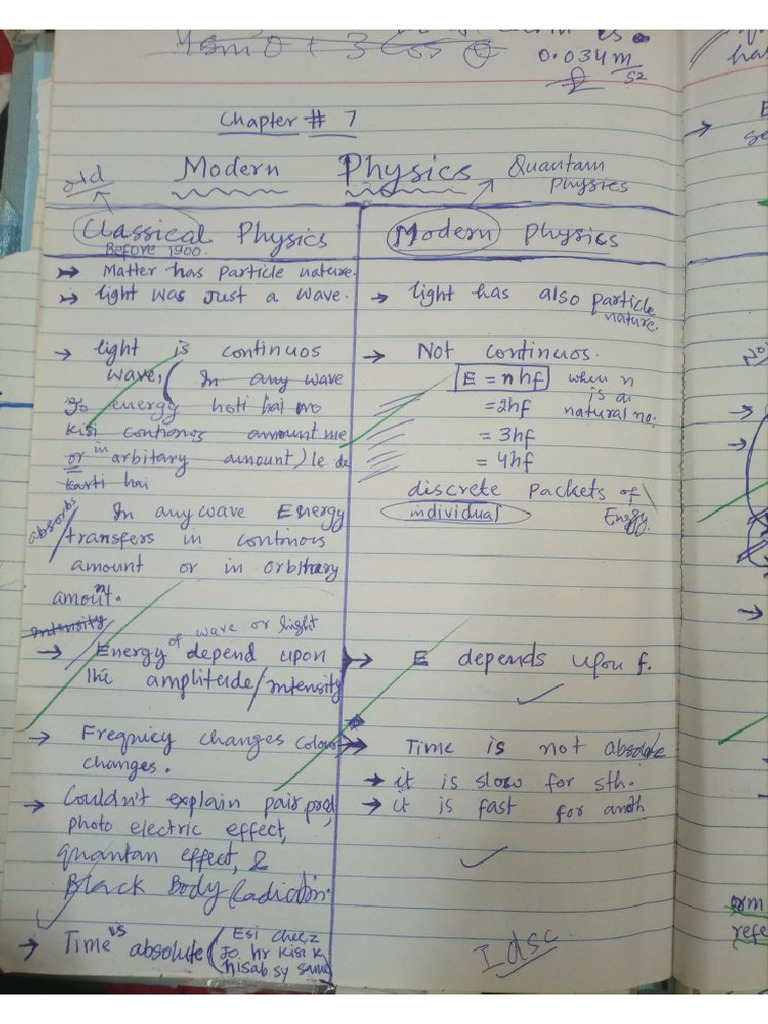 4 sin θ + 3 cos θ
0.034 m/s2
Chapter # 7
old Modern Physics Quantam
Physics
Classical Physics
Before 1900.
Matter has Particle nature.
light was Just a wave.
light is continuos
wave, ( In any wave
Jo energy hoti hai wo
kisi contionos amount me
or in arbitary amount) le de
karti hai
absorbs / In any wave Energy
transfers in continous
amount or in orbitrary
amount.
intensity
of wave or light
Energy depend upon
the amplitude/intensity
Freqniey changes colour
changes.
Couldn't explain pair prod,
photo electric effect,
quantan effect, &
Black Body Radiation.
Time is absolute ( Esi cheez
Jo hr kisi k
hisab sy same
Modern Physics
light has also particle
nature.
Not continuos.
E = nhf when n
is a
natural no;
= 2hf
= 3hf
= 4hf
discrete packets of
individual Energy.
E depends upon f.
Time is not absolute
it is slow for sth.
it is fast for anoth
has
E
No
orm
refe